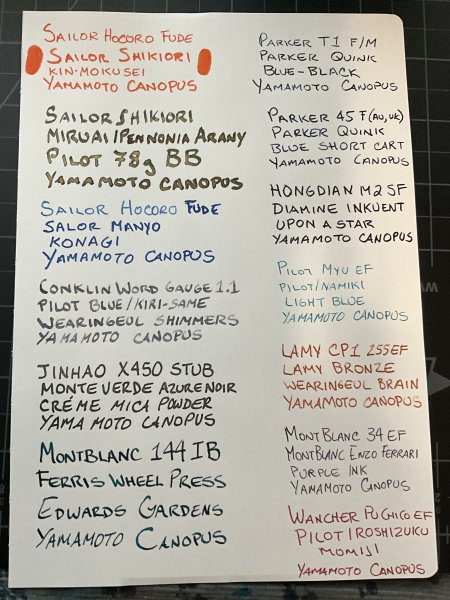 SAILOR HOCORO FUDE
SAILOR SHIKIORI
KIN-MOKUSEI
YAMAMOTO CANOPUS
SAILOR SHIKIORI
MIRUAI/PENNONIA ARANY
PILOT 78g BB
YAMAMOTO CANOPUS
SAILOR HOCORO FUDE
SALOR MANYO
KONAGI
YAMAMOTO CANOPUS
CONKLIN WORD GAUGE 1.1
PILOT BLUE/KIRI-SAME
WEARINGEUL SHIMMERS
YAMAMOTO CANOPUS
JINHAO X450 STUB
MONTEVERDE AZURENOIR
CRÉME MICA POWDER
YAMAMOTO CANOPUS
MONTBLANC 144 IB
FERRIS WHEEL PRESS
EDWARDS GARDENS
YAMAMOTO CANOPUS
PARKER T1 F/M
PARKER QUINK
BLUE-BLACK
YAMAMOTO CANOPUS
PARKER 45 F(Au,UK)
PARKER QUINK
BLUE SHORT CART
YAMAMOTO CANOPUS
HONGDIAN M2 SF
DIAMINE INKVENT
UPON A STAR
YAMAMOTO CANOPUS
PILOT MYU EF
PILOT/NAMIKI
LIGHT BLUE
YAMAMOTO CANOPUS
LAMY CP1 255EF
LAMY BRONZE
WEARINGEUL BRAIN
YAMAMOTO CANOPUS
MONTBLANC 34 EF
MONTBLANC ENZO FERRARI
PURPLE INK
YAMAMOTO CANOPUS
WANCHER PUCHICO EF
PILOT IROSHIZUKU
MOMIJI
YAMAMOTO CANOPUS